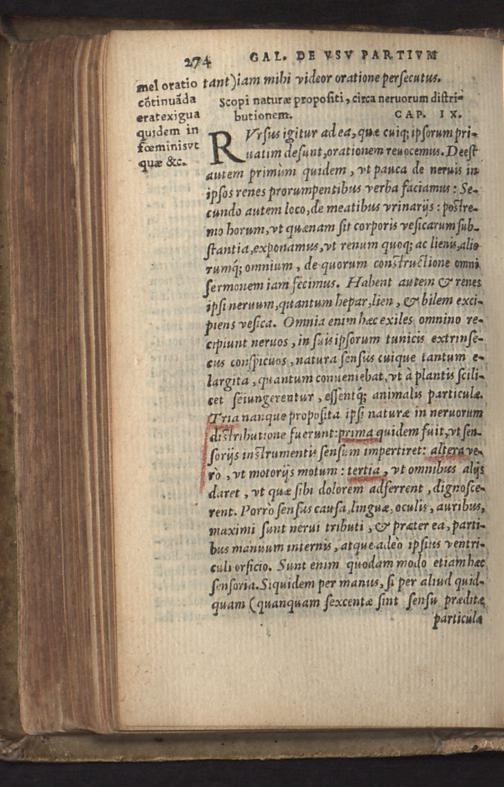 274 GAL. DE VSV PARTIVM
mel oratio
cōtinuāda
erat exigua
quidem in
fœminis vt
quæ &c.
tant) iam mihi videor oratione persecutus.
Scopi naturæ propositi, circa neruorum distri-
butionem. CAP. IX.
RVrsus igitur ad ea, quæ cuiq; ipsorum pri-
uatim desunt, orationem reuocemus. Deest
autem primum quidem, vt pauca de neruis in
ipsos renes prorumpentibus verba faciamus: Se-
cundo autem loco, de meatibus vrinarijs: postre-
mo horum, vt quænam sit corporis vesicarum sub-
stantia, exponamus, vt renum quoq; ac lienis, alio
rumq; omnium, de quorum constructione omni
sermonem iam fecimus. Habent autem & renes
ipsi neruum, quantum hepar, lien, & bilem exci-
piens vesica. Omnia enim hæc exiles omnino re-
cipiunt neruos, in suis ipsorum tunicis extrinse-
cus conspicuos, natura sensus cuique tantum e-
largita, quantum conueniebat, vt à plantis scili-
cet seiungerentur, essentq; animalis particulæ.
Tria nanque proposita ipsi naturæ in neruorum
distributione fuerunt: prima quidem fuit, vt sen-
sorijs instrumentis sensum impertiret: altera ve-
rò, vt motorijs motum: tertia, vt omnibus alijs
daret, vt quæ sibi dolorem adferrent, dignosce-
rent. Porrò sensus causa, linguæ, oculis, auribus,
maximi sunt nerui tributi, & præter ea, parti-
bus manuum internis, atque adeò ipsius ventri-
culi orficio. Sunt enim quodam modo etiam hæc
sensoria. Siquidem per manus, si per aliud quid-
quam (quanquam sexcentæ sint sensu præditæ
particulæ